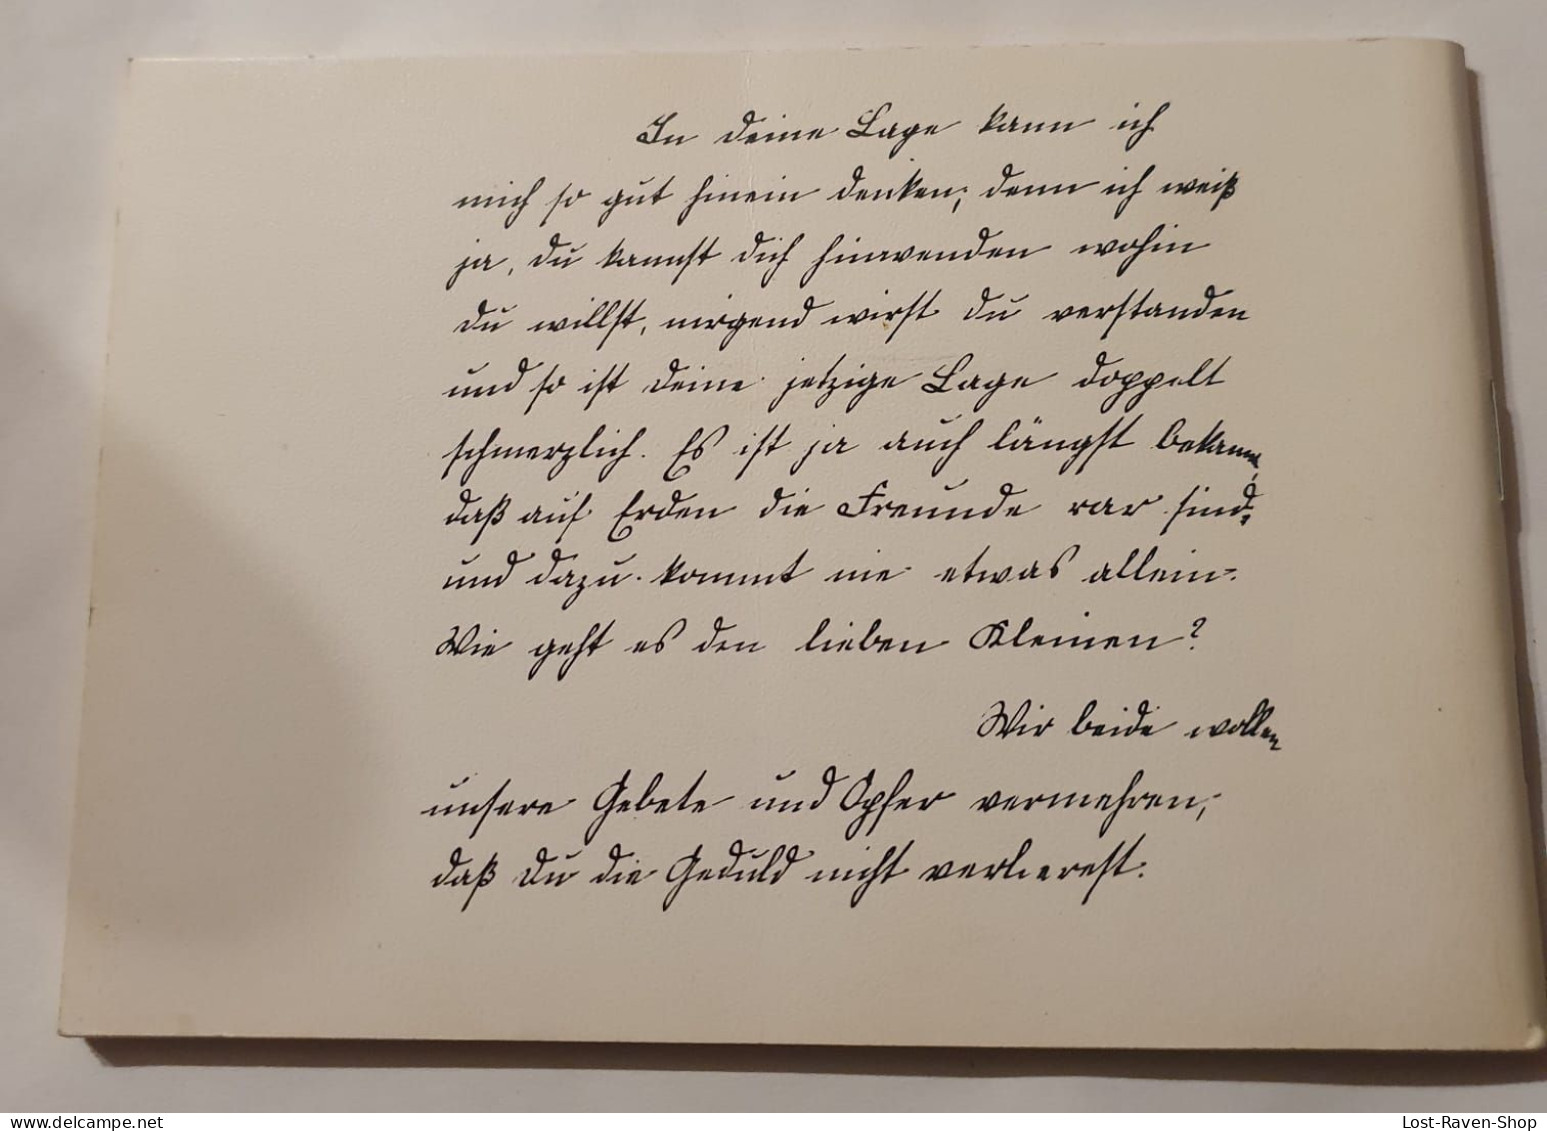 In deine Lage kann ich
mich so gut hinein denken; denn ich weiß
ja, du kannst dich hinwenden wohin
du willst, nirgend wirst du verstanden
und so ist deine jetzige Lage doppelt
schmerzlich. Es ist ja auch längst bekannt,
daß auf Erden die Freunde rar sind,
und dazu kommt nie etwas allein.
Wie geht es den lieben Kleinen?
Wir beide wollen
unsere Gebete und Opfer vermehren,
daß du die Geduld nicht verlierest.
www.delcampe.net
Lost-Raven-Shop